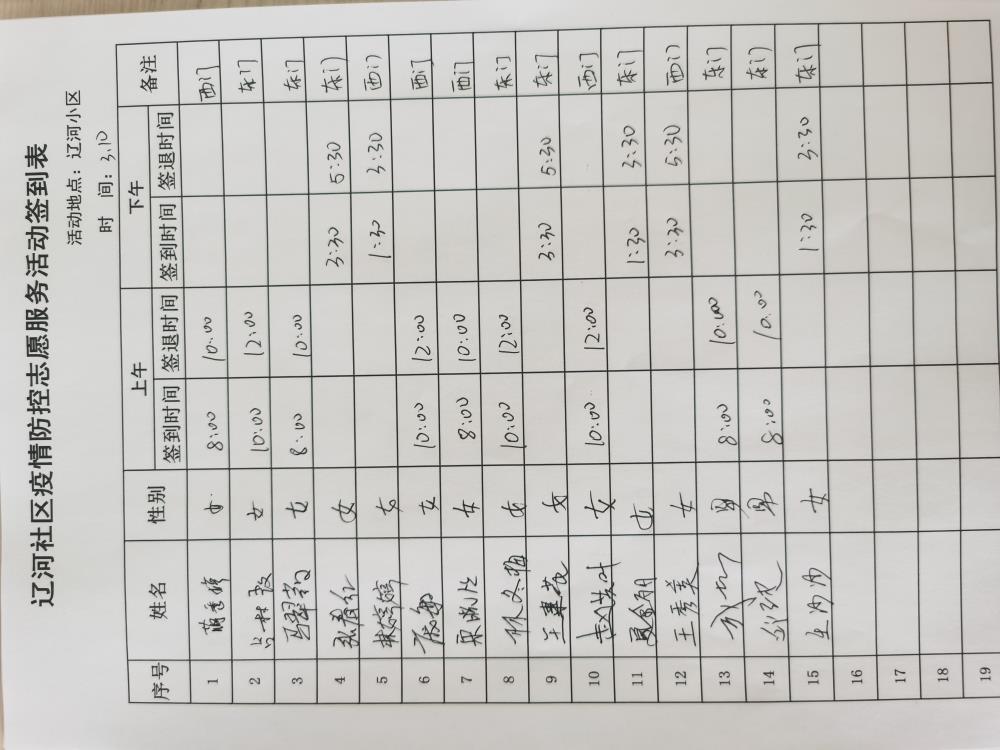 辽河社区疫情防控志愿服务活动签到表
活动地点：辽河小区
时 间：3.10
序号 姓名 性别 上午 下午 备注
签到时间 签退时间 签到时间 签退时间
1 女 8:00 10:00 西门
2 女 10:00 12:00 东门
3 女 8:00 10:00 东门
4 女 3:30 5:30 东门
5 林婷婷 女 1:30 3:30 西门
6 女 10:00 12:00 西门
7 女 8:00 10:00 西门
8 林冬梅 女 10:00 12:00 东门
9 女 3:30 5:30 东门
10 女 10:00 12:00 西门
11 女 1:30 3:30 东门
12 王秀美 女 3:30 5:30 西门
13 男 8:00 10:00 东门
14 男 8:00 10:00 东门
15 女 1:30 3:30 东门
16
17
18
19